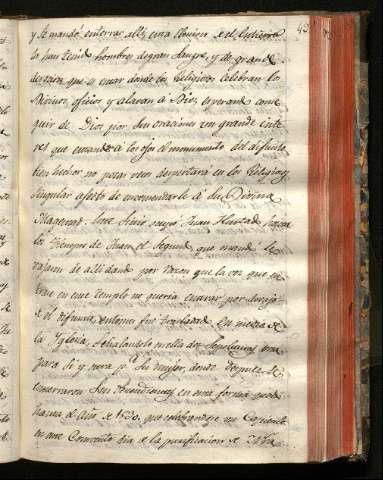 y se mandó enterrar alli, cuya eleccion de el entierro
la han tenido hombres de gran sangre, y de grande
devocion, que es estar donde los Religiosos celebran los
Divinos oficios y alavan á Dios, esperando conse
guir de Dios por sus oraciones con grande inte
res que entrando a los ojos el monumento del difunto
bien hechor no pocas veces despertara en los Religiosos
singular afecto de encomendarle á Su Divina
Magestad. Este sitio Juan Hurtado hasta
los tiempos de Juan el segundo, que mandó le
vajasen de alli dando por razon que la voz que en
trase en este templo no queria entrar por devajo
de el difunto, entonces fue trasladado en medio de
la Yglesia, señalandole en ella dos sepulturas una
para si y otra p.ª su muger, donde despues se
enterraron sus en esta forma
hasta el año de que celebrandose un Capitulo
en este Convento dia de la purificacion de Nra